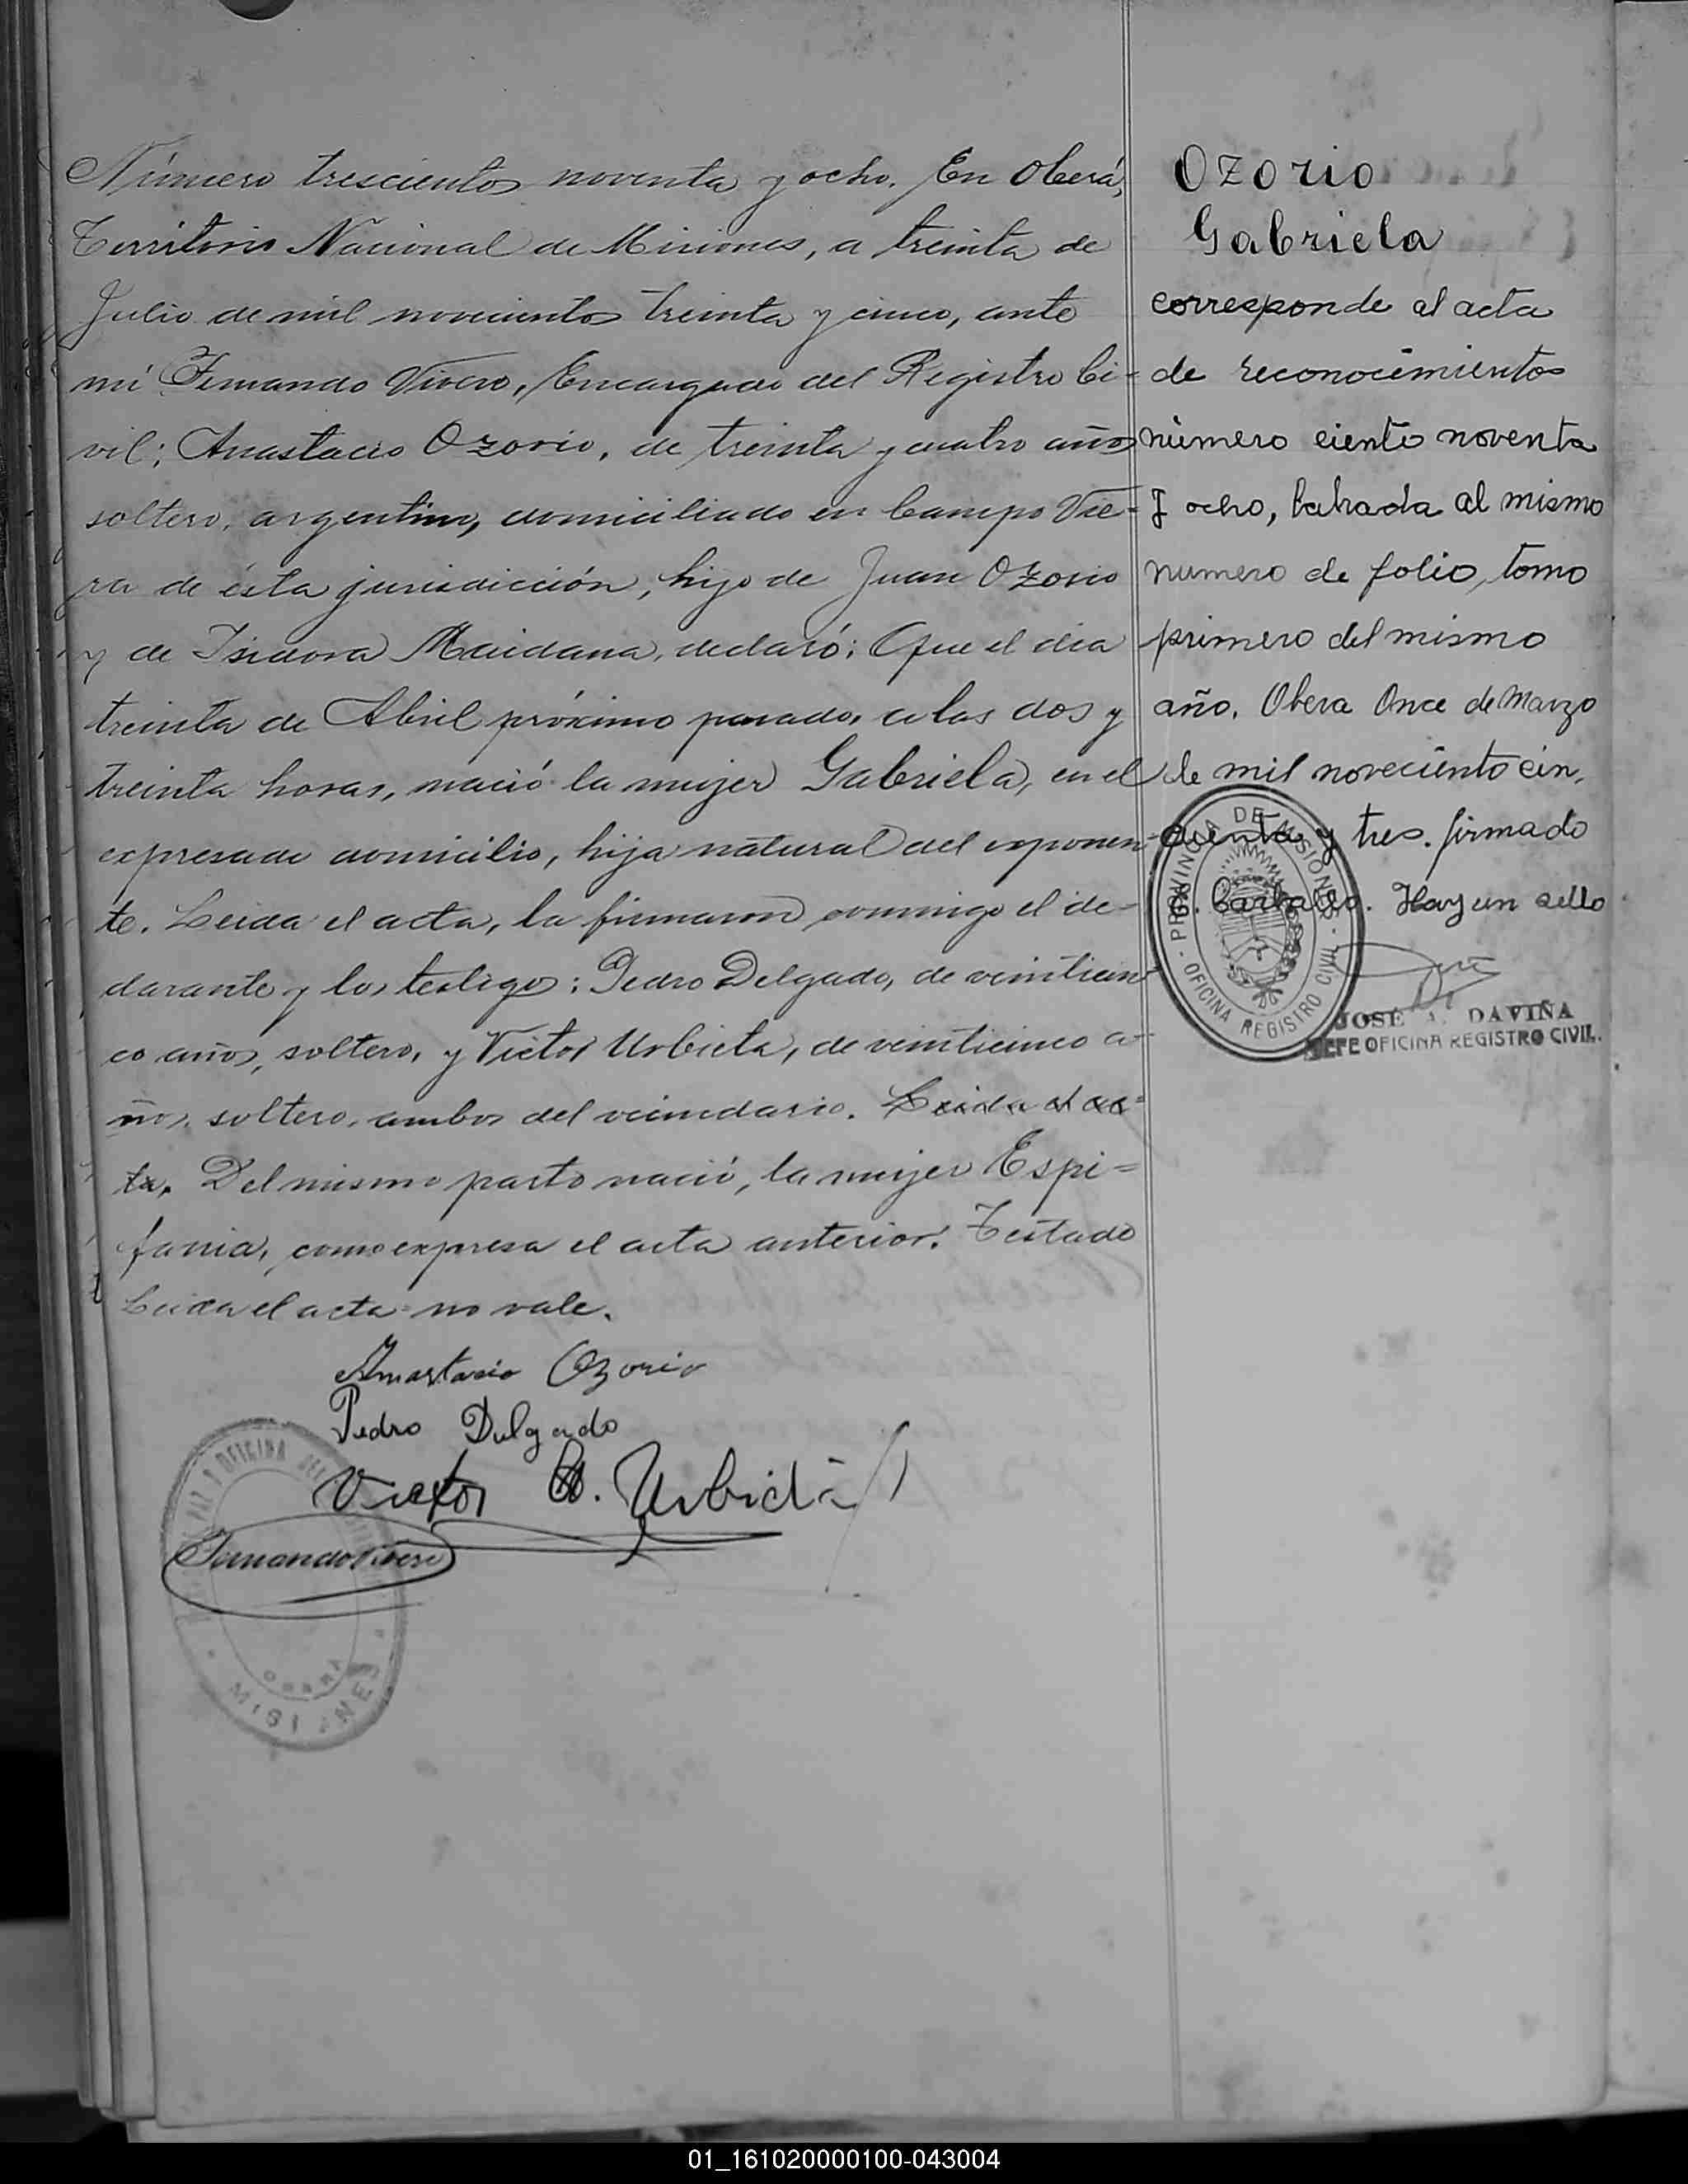 Número trescientos noventa y ocho. En Oberá,
Territorio Nacional de Misiones, a treinta de
Julio de mil novecientos treinta y cinco, ante
mi Fernando Vivero, Encargado del Registro Ci-
vil; Anastacio Ozorio, de treinta y cuatro años
soltero, argentino, domiciliado en Campo Vie-
ra de ésta jurisdicción, hijo de Juan Ozorio
y de Isidora Maidana, declaró: Que el dia
treinta de Abril próximo pasado, a las dos y
treinta horas, nació la mujer Gabriela, en el
expresado domicilio, hija natural del exponen-
te. Leida el acta, la firmaron conmigo el de-
clarante y los testigos: Pedro Delgado, de veinticin
co años, soltero, y Victor Urbieta, de veinticinco a-
ños, soltero, ambos del vecindario. Leida el ac-
ta. Del mismo parto nació, la mujer Espi-
fania, como expresa el acta anterior. Testado
Leida el acta no vale.
Anastacio Ozorio
Pedro Delgado
Victor Urbieta
Fernando Vivero
OFICINA DEL
OBERA
MISIONES
Ozorio
Gabriela
corresponde al acta
de reconocimientos
número ciento noventa
y ocho, labrada al mismo
numero de folio, tomo
primero del mismo
año. Obera Once de Marzo
de mil noveciento cin,
cuenta y tres. firmado
Carballo. Hay un sello
PROVINCIA DE MISIONES
OFICINA REGISTRO CIVIL
JOSE A. DAVIÑA
JEFE OFICINA REGISTRO CIVIL.
01_161020000100-043004